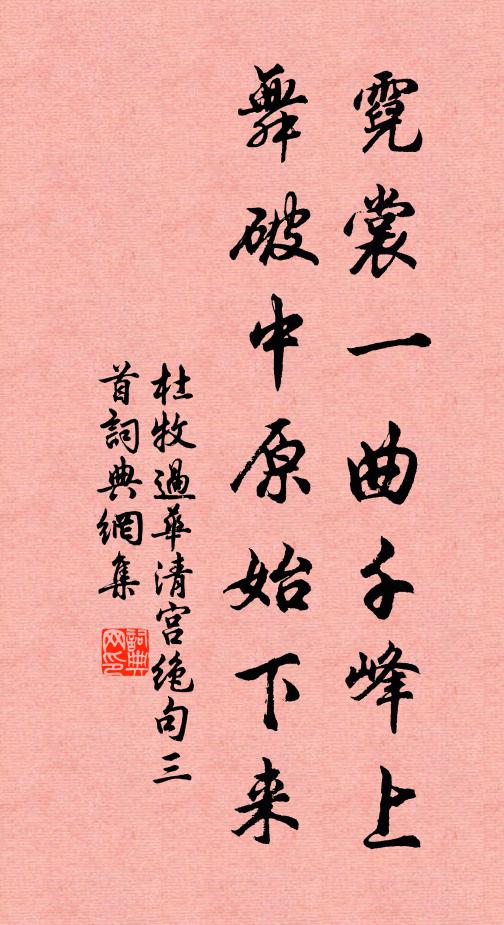 霓裳一曲千峰上
舞破中原始下来
杜牧過華清宮绝句三
首詞典網集
詞典网印